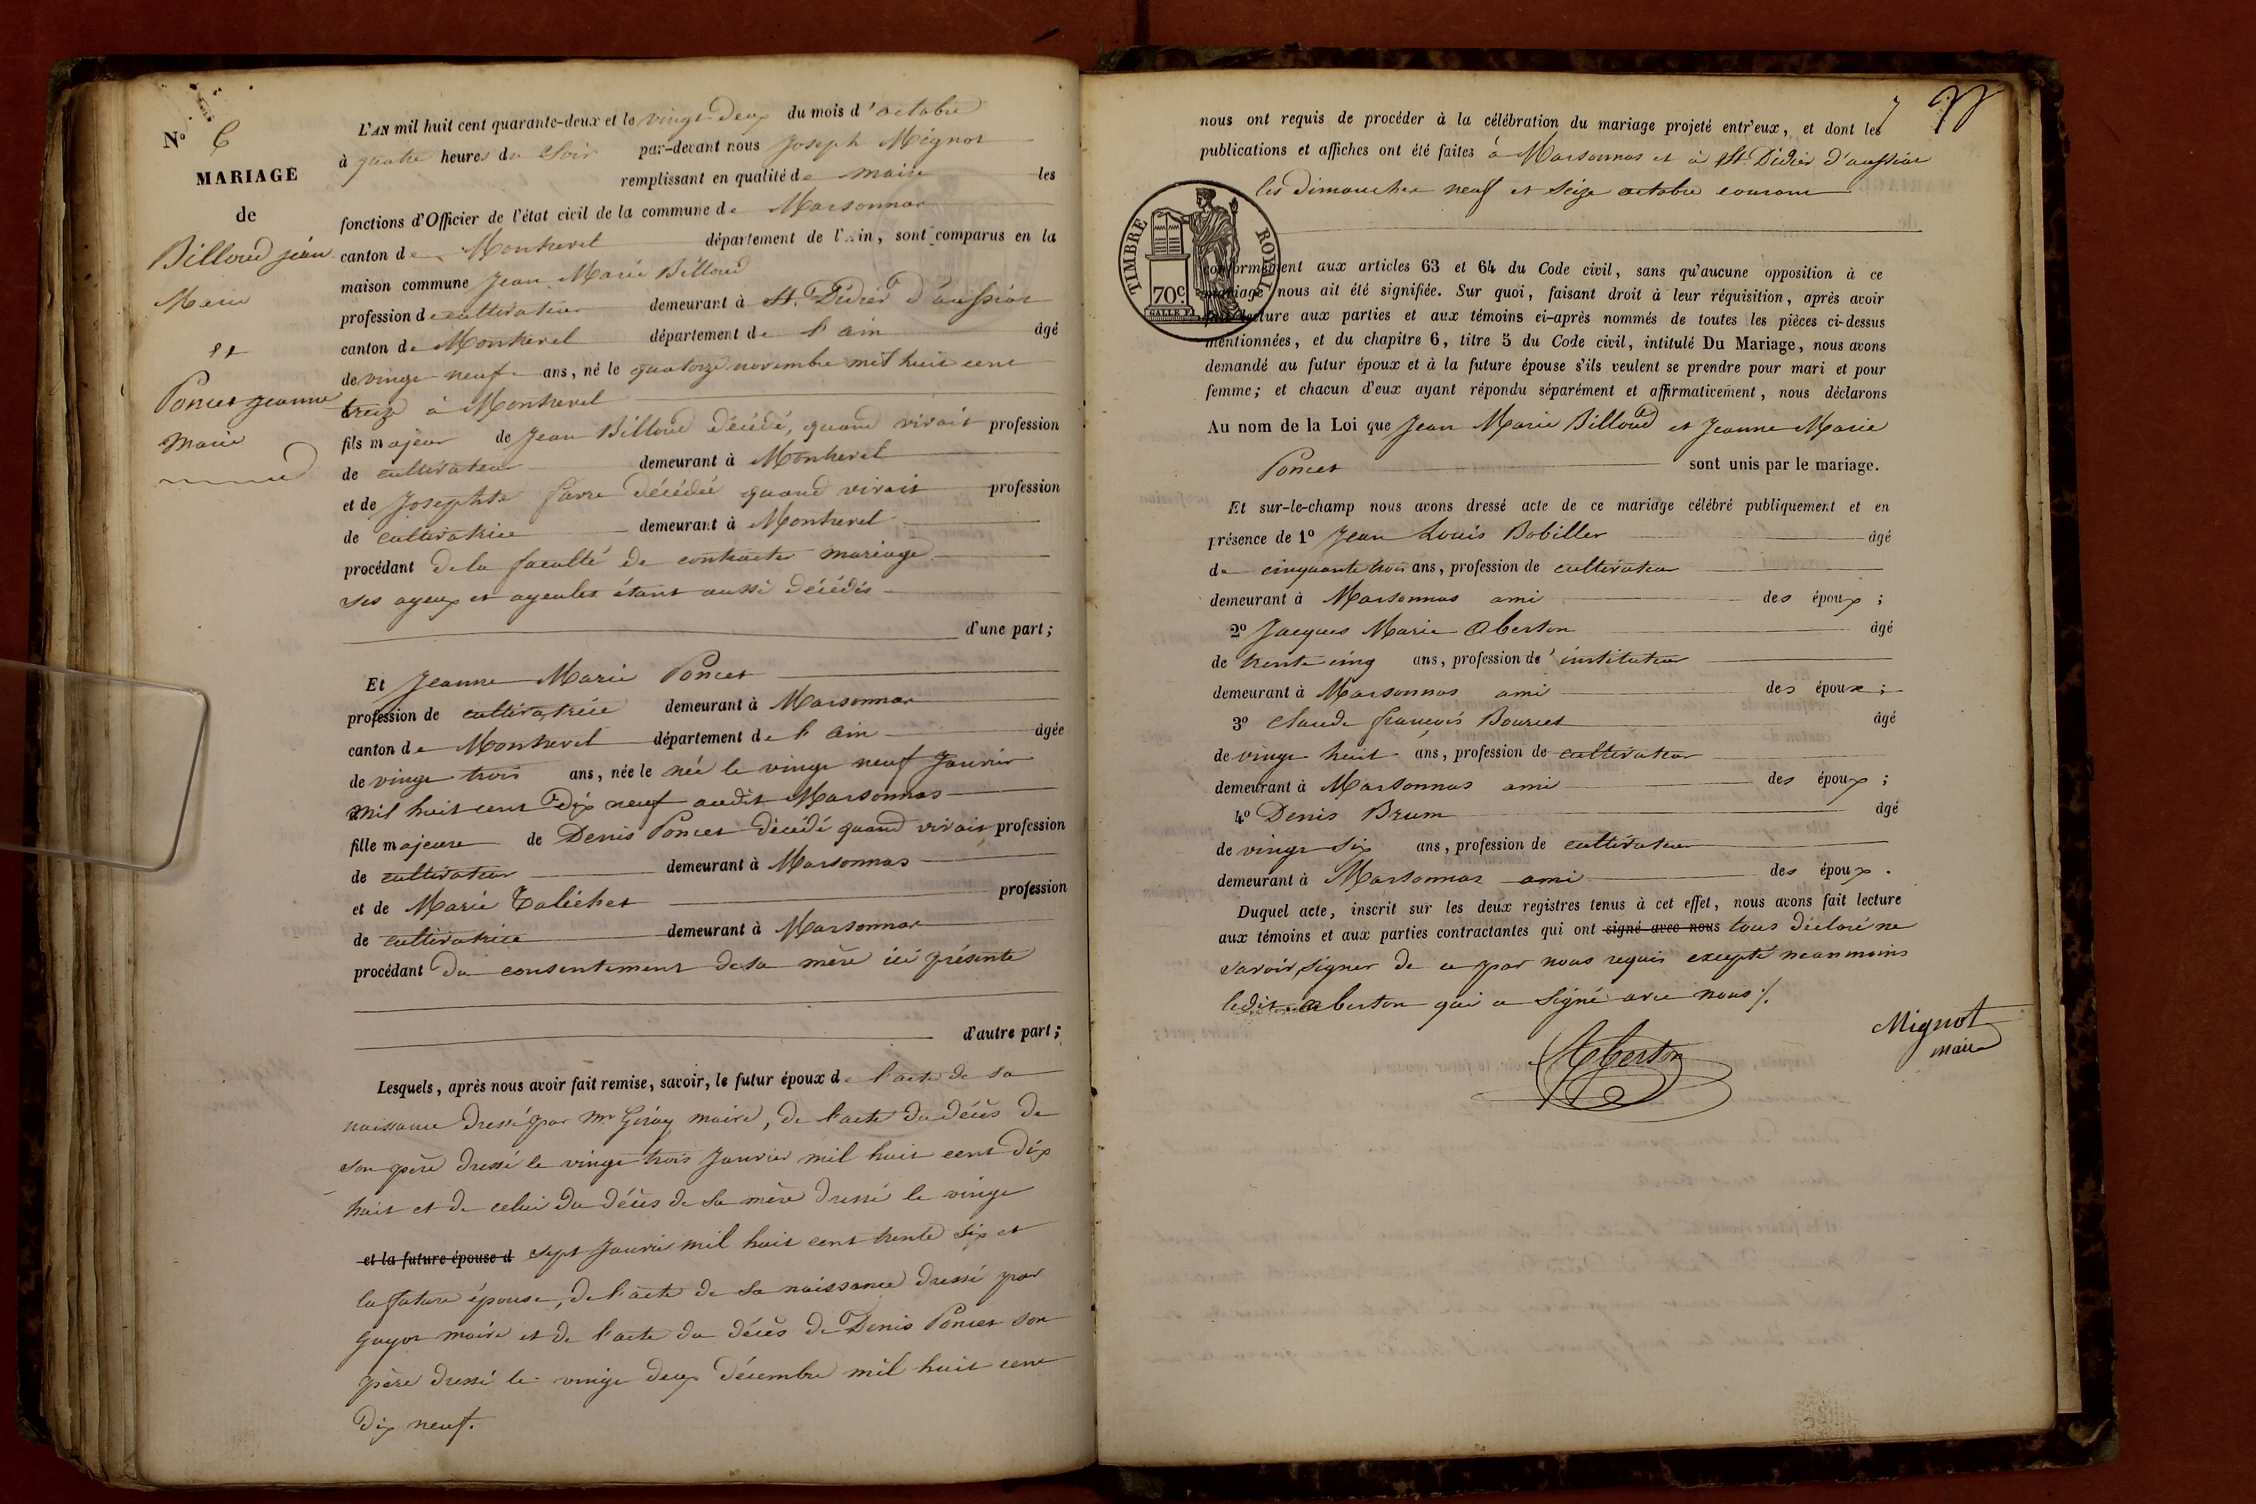 N° 6
MARIAGE
de
Billoud jean
Marie
et
Poncet jeanne
marie
L'AN mil huit cent quarante-deux et le vingt-deux du mois d'octobre
à quatre heures du soir par-devant nous Joseph Mignot
remplissant en qualité de maire les
fonctions d'Officier de l'état civil de la commune de Marsonnas
canton de Montrevel département de l'Ain, sont comparus en la
maison commune Jean Marie Billoud
profession de cultivateur demeurant à St. Didier d'aussiat
canton de Montrevel département de l'ain âgé
de vingt neuf ans, né le quatorze novembre mil huit cent
treize à Montrevel
fils majeur de Jean Billoud décédé, quand vivait profession
de cultivateur demeurant à Montrevel
et de Josephte favre décédée quand vivait profession
de cultivatrice demeurant à Montrevel
procédant de la faculté de contracter mariage
ses ayeux et ayeules étant aussi décédés
d'une part;
Et Jeanne Marie Poncet
profession de cultivatrice demeurant à Marsonnas
canton de Montrevel département de l'ain âgée
de vingt trois ans, née le née le vingt neuf Janvier
mil huit cent dix neuf audit Marsonnas
fille majeure de Denis Poncet décédé quand vivait, profession
de cultivateur demeurant à Marsonnas
et de Marie Taliehet profession
de cultivatrice demeurant à Marsonnas
procédant du consentement de sa mère ici présente
d'autre part;
Lesquels, après nous avoir fait remise, savoir, le futur époux de l'acte de sa
naissance dressé par Mr Giray maire, de l'acte du décès de
son père dressé le vingt trois Janvier mil huit cent dix
huit et de celui du décès de sa mère dressé le vingt
et la future épouse d sept Janvier mil huit cent trente six et
la future épouse, de l'acte de sa naissance dressé par
Guyot maire et de l'acte du décès de Denis Poncet son
père dressé le vingt deux décembre mil huit cent
dix neuf.
7
nous ont requis de procéder à la célébration du mariage projeté entr'eux, et dont les
publications et affiches ont été faites à Marsonnas et à St. Didier d'aussiat
les dimanches neuf et seize octobre courant
TIMBRE ROYAL
70c
SALLE F
conformément aux articles 63 et 64 du Code civil, sans qu'aucune opposition à ce
mariage nous ait été signifiée. Sur quoi, faisant droit à leur réquisition, après avoir
fait lecture aux parties et aux témoins ci-après nommés de toutes les pièces ci-dessus
mentionnées, et du chapitre 6, titre 5 du Code civil, intitulé Du Mariage, nous avons
demandé au futur époux et à la future épouse s'ils veulent se prendre pour mari et pour
femme; et chacun d'eux ayant répondu séparément et affirmativement, nous déclarons
Au nom de la Loi que Jean Marie Billoud et Jeanne Marie
Poncet sont unis par le mariage.
Et sur-le-champ nous avons dressé acte de ce mariage célébré publiquement et en
présence de 1° Jean Louis Bobiller âgé
de cinquante trois ans, profession de cultivateur
demeurant à Marsonnas ami des époux;
2° Jacques Marie Aberton âgé
de trente cinq ans, profession d'instituteur
demeurant à Marsonnas ami des époux;
3° Claude françois Bourcet âgé
de vingt huit ans, profession de cultivateur
demeurant à Marsonnas ami des époux;
4° Denis Brum âgé
de vingt six ans, profession de cultivateur
demeurant à Marsonnas ami des époux.
Duquel acte, inscrit sur les deux registres tenus à cet effet, nous avons fait lecture
aux témoins et aux parties contractantes qui ont signé avec nous tous déclaré ne
savoir signer de ce par nous requis excepté néanmoins
ledit aberton qui a signé avec nous ./.
Aberton
Mignot
maire